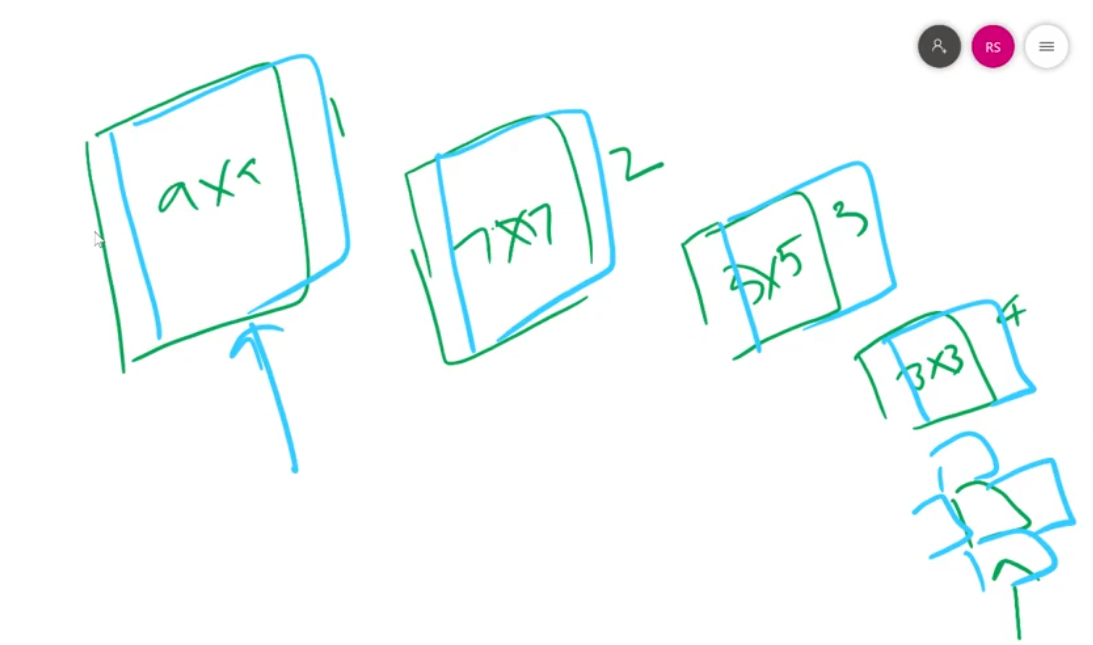 RS
9x9
1
7x7
2
5x5
3
3x3
4